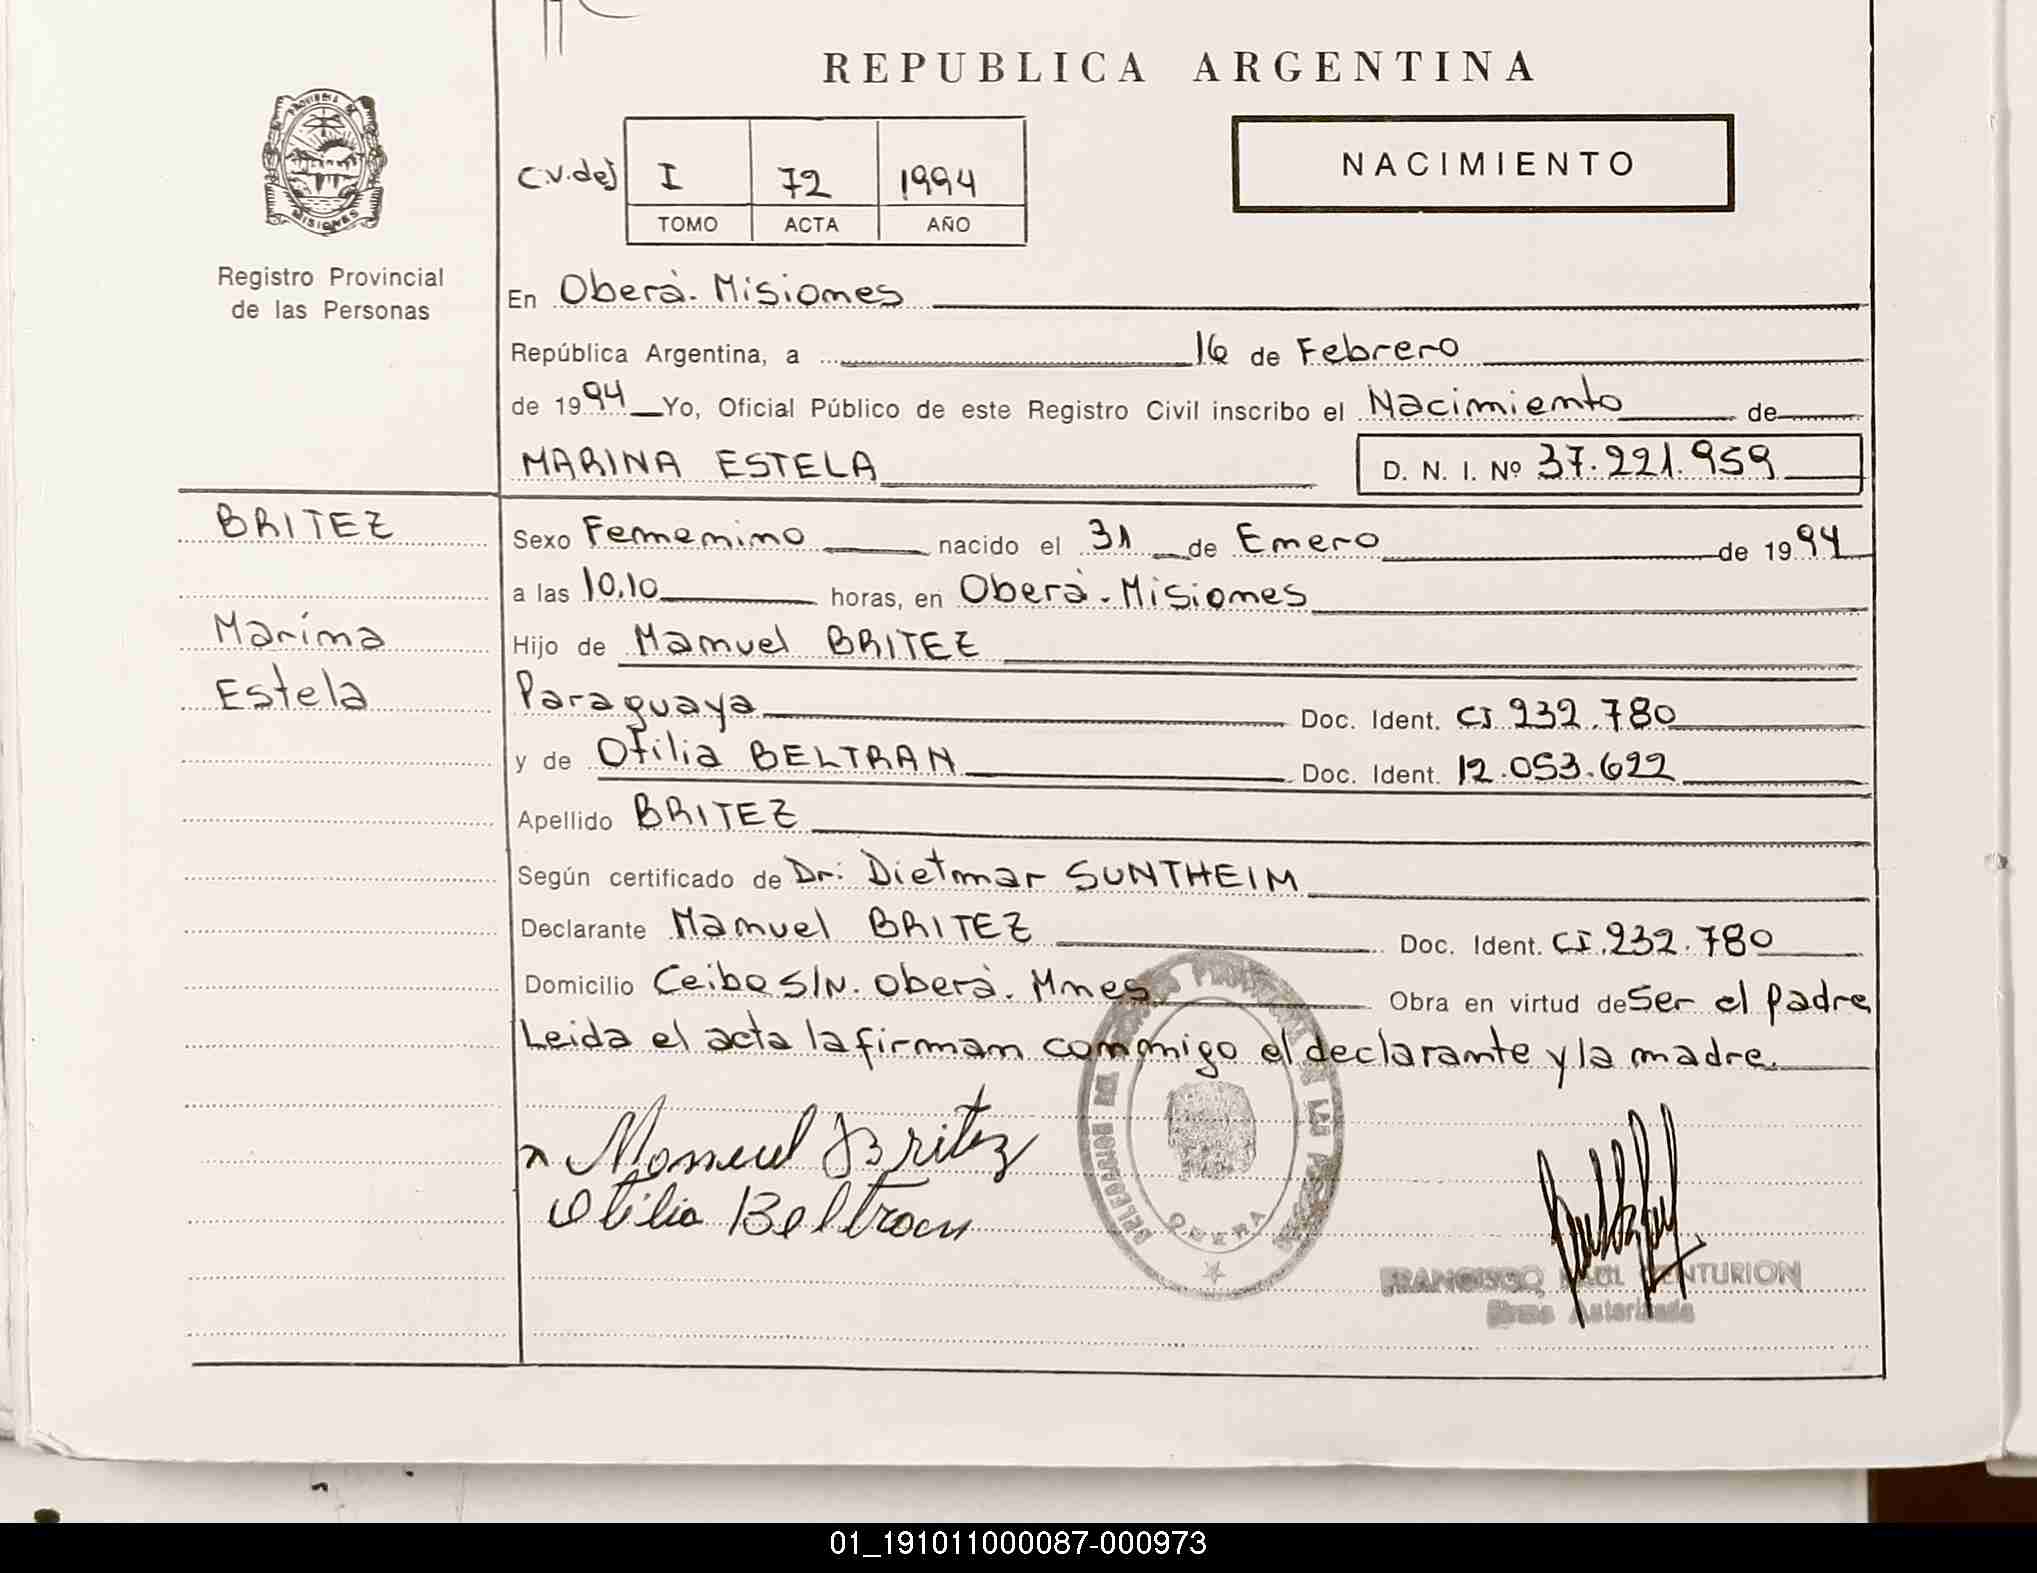 REPUBLICA ARGENTINA
PROVINCIA DE
MISIONES
Registro Provincial
de las Personas
I 72 1994
TOMO ACTA AÑO
NACIMIENTO
En Oberá. Misiones
República Argentina, a 16 de Febrero
de 1994 Yo, Oficial Público de este Registro Civil inscribo el Nacimiento de
MARINA ESTELA D. N. I. Nº 37.221.959
BRITEZ
Marina
Estela
Sexo Femenino nacido el 31 de Enero de 1994
a las 10,10 horas, en Oberá. Misiones
Hijo de Manuel BRITEZ
Paraguaya Doc. Ident. CI 232.780
y de Otilia BELTRAN Doc. Ident. 12.053.622
Apellido BRITEZ
Según certificado de Dr: Dietmar SUNTHEIM
Declarante Manuel BRITEZ Doc. Ident. CI.232.780
Domicilio Ceibo S/N. Oberá. Mnes Obra en virtud de Ser el padre
Leida el acta la firman conmigo el declarante y la madre.
Manuel Britez
Otilia Beltran
OBERA
FRANCISCO RAUL CENTURION
Firma Autorizada
01_191011000087-000973